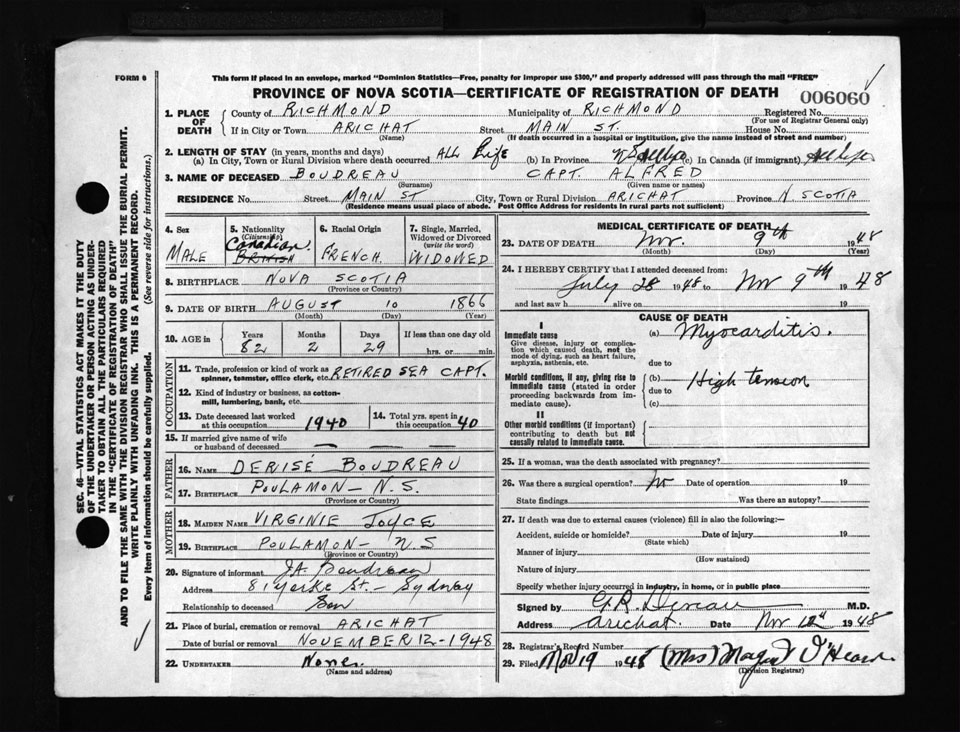 FORM 6
This form if placed in an envelope, marked "Dominion Statistics—Free, penalty for improper use $300," and properly addressed will pass through the mail "FREE"
PROVINCE OF NOVA SCOTIA—CERTIFICATE OF REGISTRATION OF DEATH
006060
1. PLACE OF DEATH
County of RICHMOND Municipality of RICHMOND Registered No.
(For use of Registrar General only)
If in City or Town ARICHAT Street MAIN ST. House No.
(Name) (If death occurred in a hospital or institution, give the name instead of street and number)
2. LENGTH OF STAY (in years, months and days)
(a) In City, Town or Rural Division where death occurred ALL Life (b) In Province (c) In Canada (if immigrant)
3. NAME OF DECEASED BOUDREAU CAPT. ALFRED
(Surname) (Given name or names)
RESIDENCE No. Street MAIN ST City, Town or Rural Division ARICHAT Province N. SCOTIA
(Residence means usual place of abode. Post Office Address for residents in rural parts not sufficient)
4. Sex
MALE
5. Nationality
(Citizenship)
Canadian
BRITISH
6. Racial Origin
FRENCH.
7. Single, Married,
Widowed or Divorced
(write the word)
WIDOWED
8. BIRTHPLACE NOVA SCOTIA
(Province or Country)
9. DATE OF BIRTH AUGUST 10 1866
(Month) (Day) (Year)
10. AGE in
Years Months Days If less than one day old
82 2 29 hrs. or min.
OCCUPATION
11. Trade, profession or kind of work as
spinner, teamster, office clerk, etc. RETIRED SEA CAPT.
12. Kind of industry or business, as cotton-
mill, lumbering, bank, etc.
13. Date deceased last worked
at this occupation 1940
14. Total yrs. spent in
this occupation 40
15. If married give name of wife
or husband of deceased
FATHER
16. NAME DERISÉ BOUDREAU
17. BIRTHPLACE POULAMON - N.S.
(Province or Country)
MOTHER
18. MAIDEN NAME VIRGINIE JOYCE
19. BIRTHPLACE POULAMON - N.S
(Province or Country)
20. Signature of informant J.A. Boudreau
Address 81 Yorke St. - Sydney
Relationship to deceased Son
21. Place of burial, cremation or removal ARICHAT
Date of burial or removal NOVEMBER 12-1948
22. UNDERTAKER None.
(Name and address)
MEDICAL CERTIFICATE OF DEATH
23. DATE OF DEATH Nov. 9th 1948
(Month) (Day) (Year)
24. I HEREBY CERTIFY that I attended deceased from:
July 28 1948 to Nov 9th 1948
and last saw h alive on 19
CAUSE OF DEATH
I
Immediate cause
Give disease, injury or complica-
tion which caused death, not the
mode of dying, such as heart failure,
asphyxia, asthenia, etc.
(a) Myocarditis.
due to
Morbid conditions, if any, giving rise to
immediate cause (stated in order
proceeding backwards from im-
mediate cause).
(b) High tension
due to
(c)
II
Other morbid conditions (if important)
contributing to death but not
causally related to immediate cause.
25. If a woman, was the death associated with pregnancy?
26. Was there a surgical operation? No Date of operation 19
State findings Was there an autopsy?
27. If death was due to external causes (violence) fill in also the following:—
Accident, suicide or homicide? Date of injury 19
(State which)
Manner of injury
(How sustained)
Nature of injury
Specify whether injury occurred in industry, in home, or in public place
Signed by G.R. M.D.
Address Arichat. Date Nov 12th 1948
28. Registrar's Record Number
29. Filed Nov 19 1948 (Mrs) O'Hearn
(Division Registrar)
SEC. 46—VITAL STATISTICS ACT MAKES IT THE DUTY
OF THE UNDERTAKER OR PERSON ACTING AS UNDER-
TAKER TO OBTAIN ALL THE PARTICULARS REQUIRED
IN THE "CERTIFICATE OF REGISTRATION OF DEATH"
AND TO FILE THE SAME WITH THE DIVISION REGISTRAR WHO SHALL ISSUE THE BURIAL PERMIT.
WRITE PLAINLY WITH UNFADING INK. THIS IS A PERMANENT RECORD.
Every item of information should be carefully supplied. (See reverse side for instructions.)